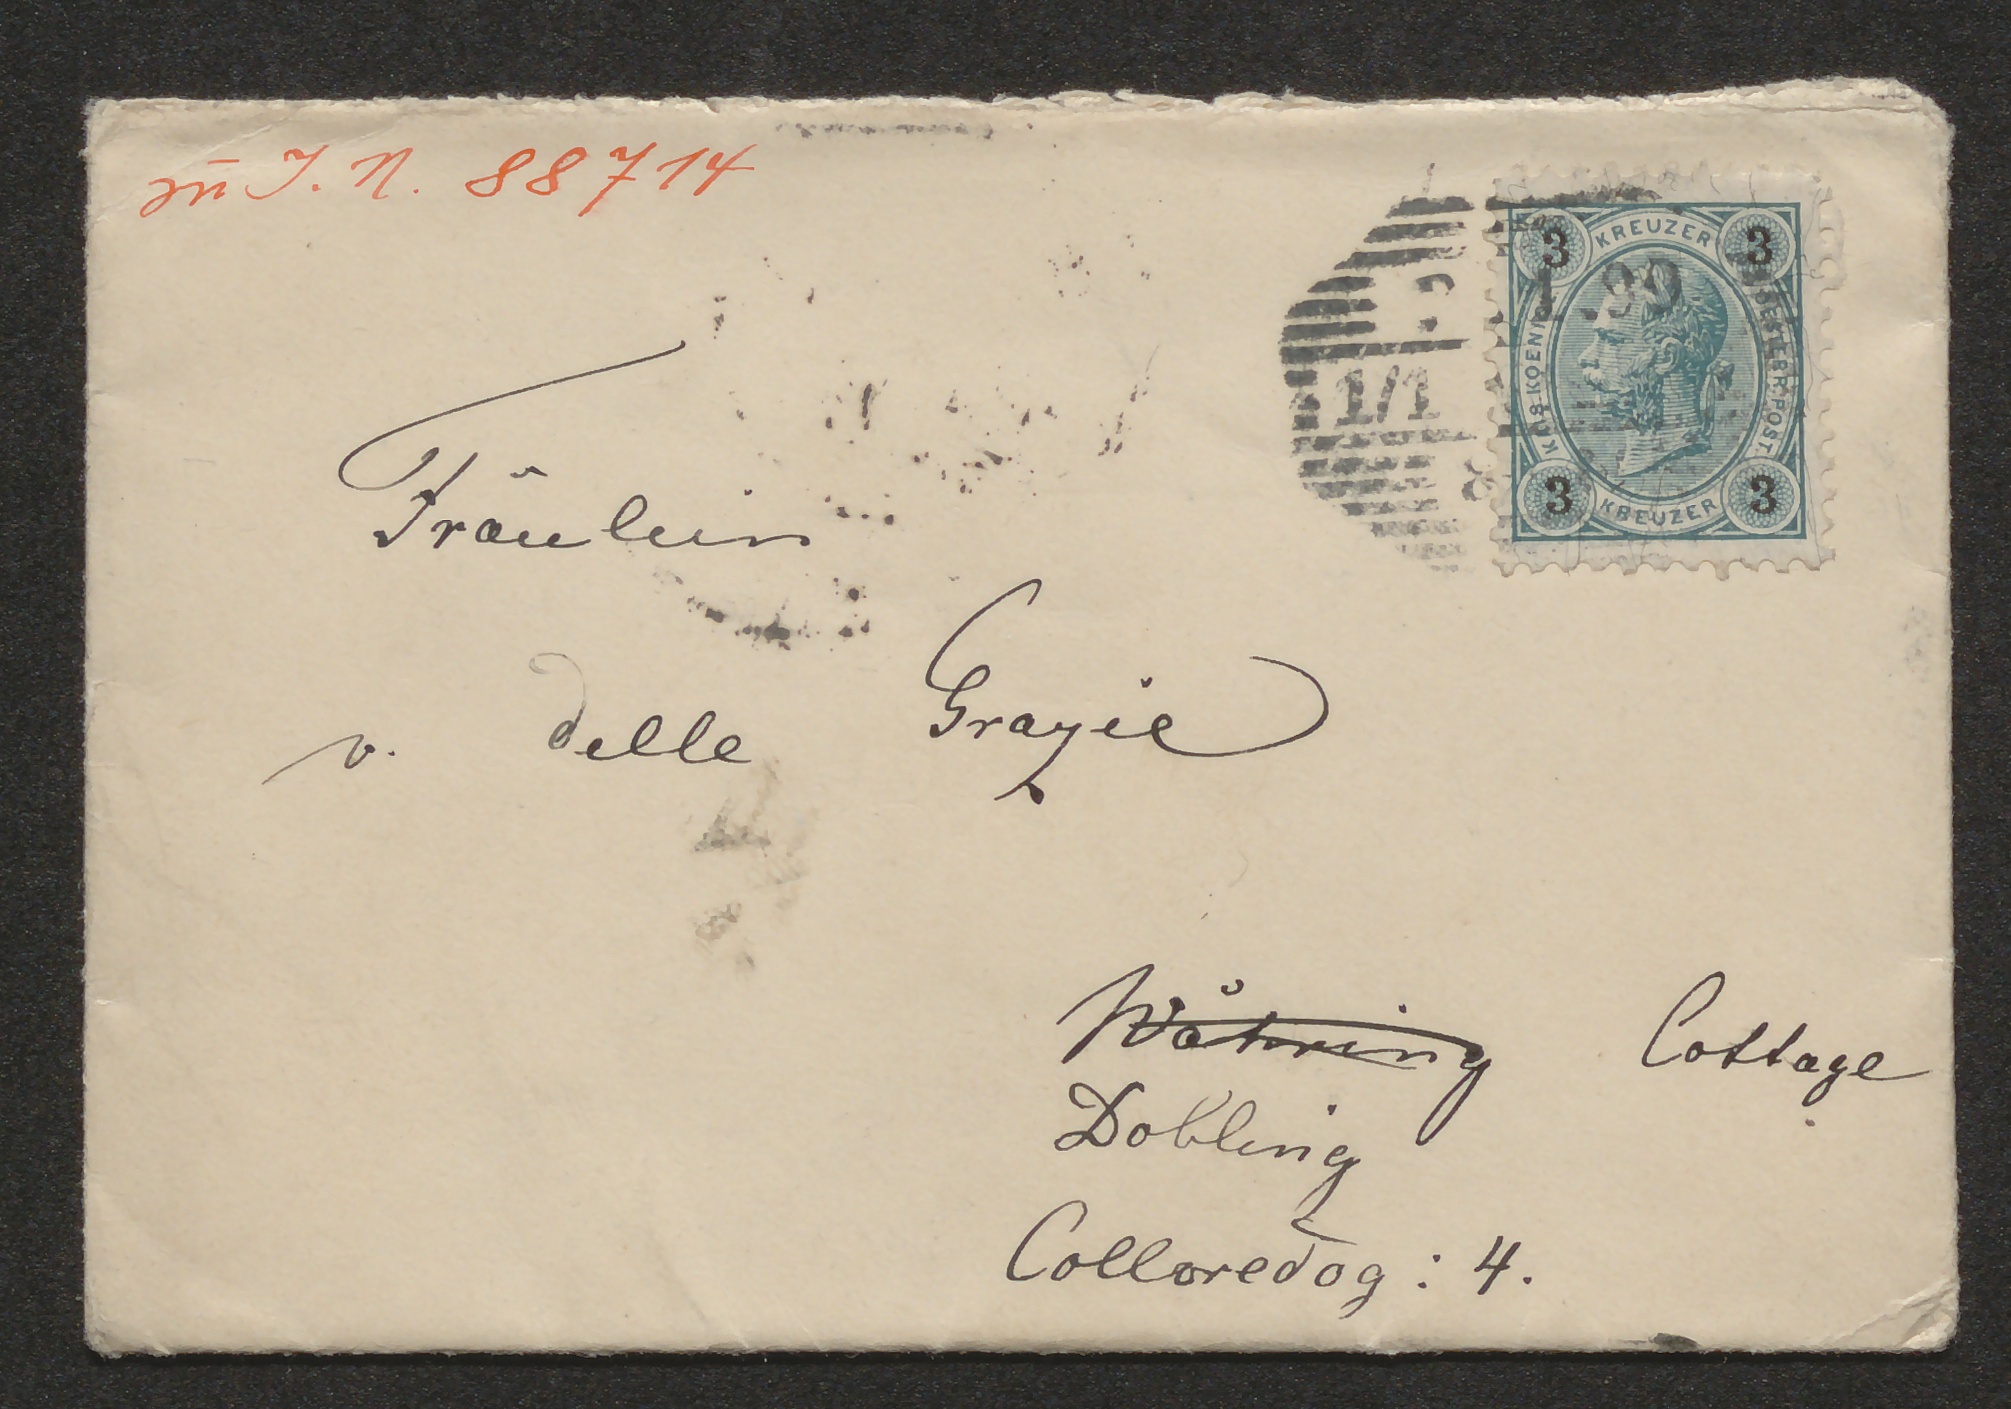 zu I. N. 88714
3 KREUZER 3
KAIS. KOENIGL. OESTERR. POST.
1/1
3 KREUZER 3
Fräulein
v. delle Grazie
Währing Cottage
Döbling
Colloredog: 4.